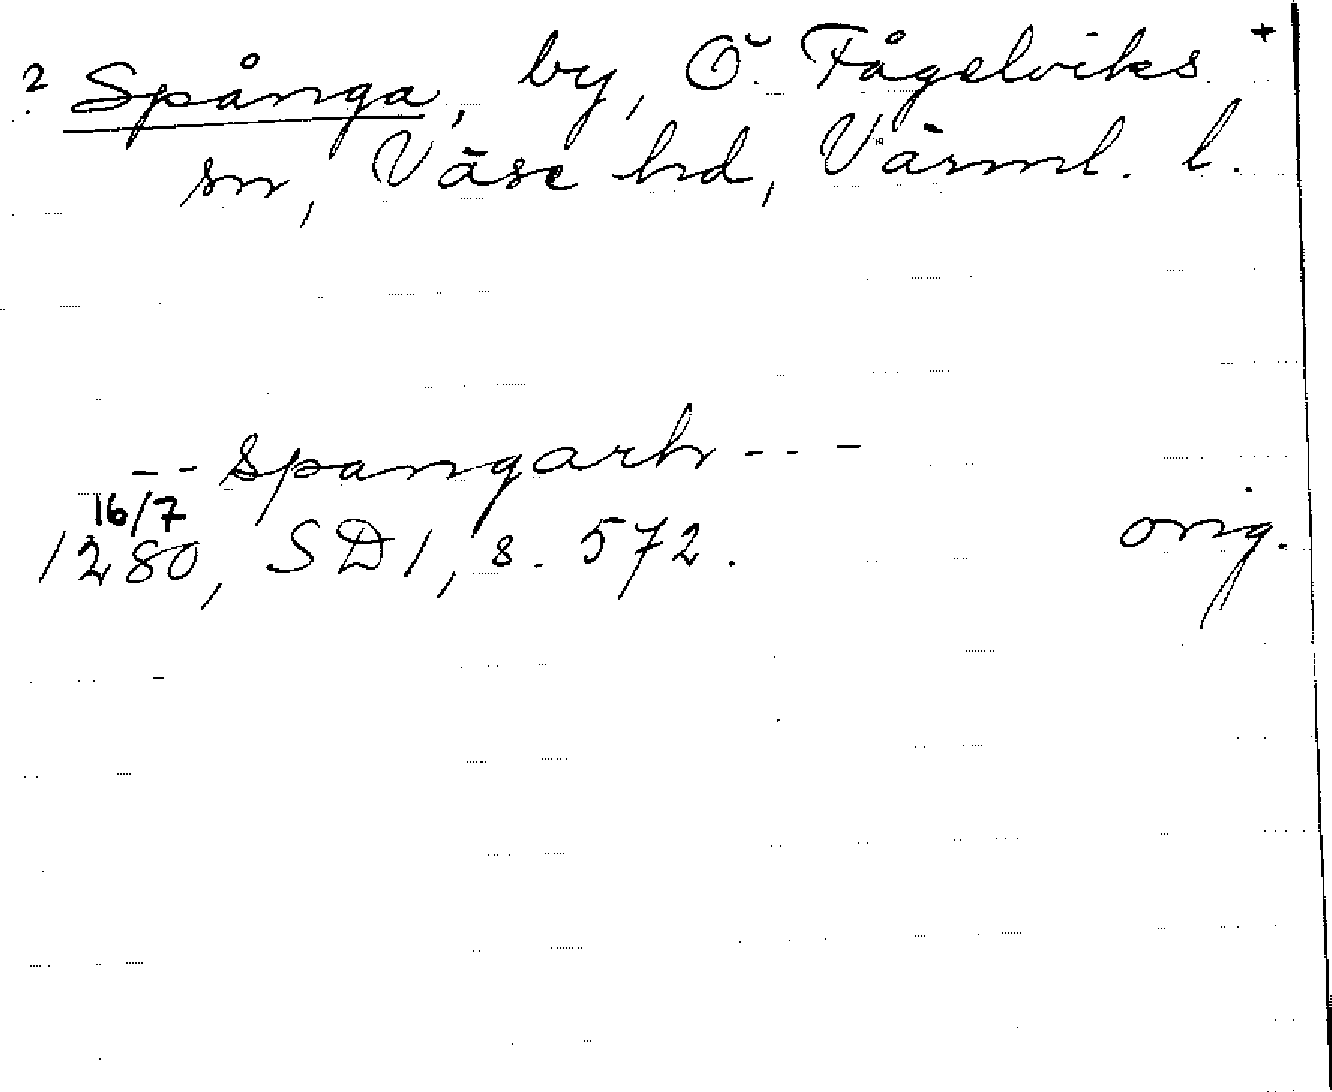 ? Spånga, by, Ö. Fågelviks +
sn, Väse hd, Värml. l.
-- Spangarh - - -
16/7
1280, SD 1, s. 572. orig.